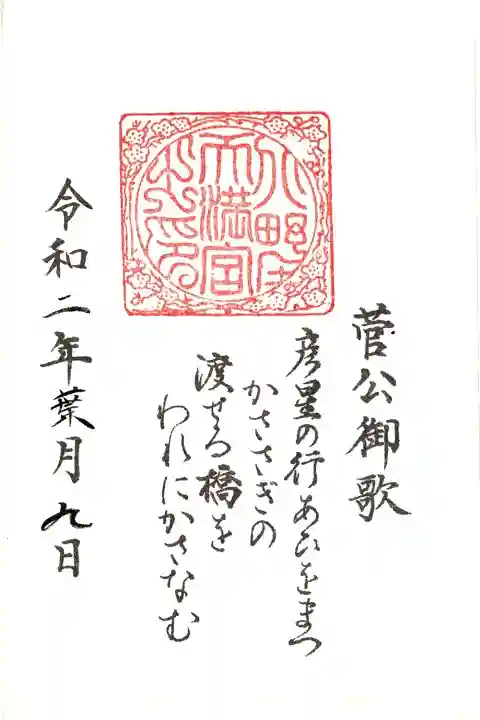 天満宮
菅公御歌
彦星の行あひをまつ
かささぎの
渡せる橋を
われにかさなむ
令和二年葉月九日